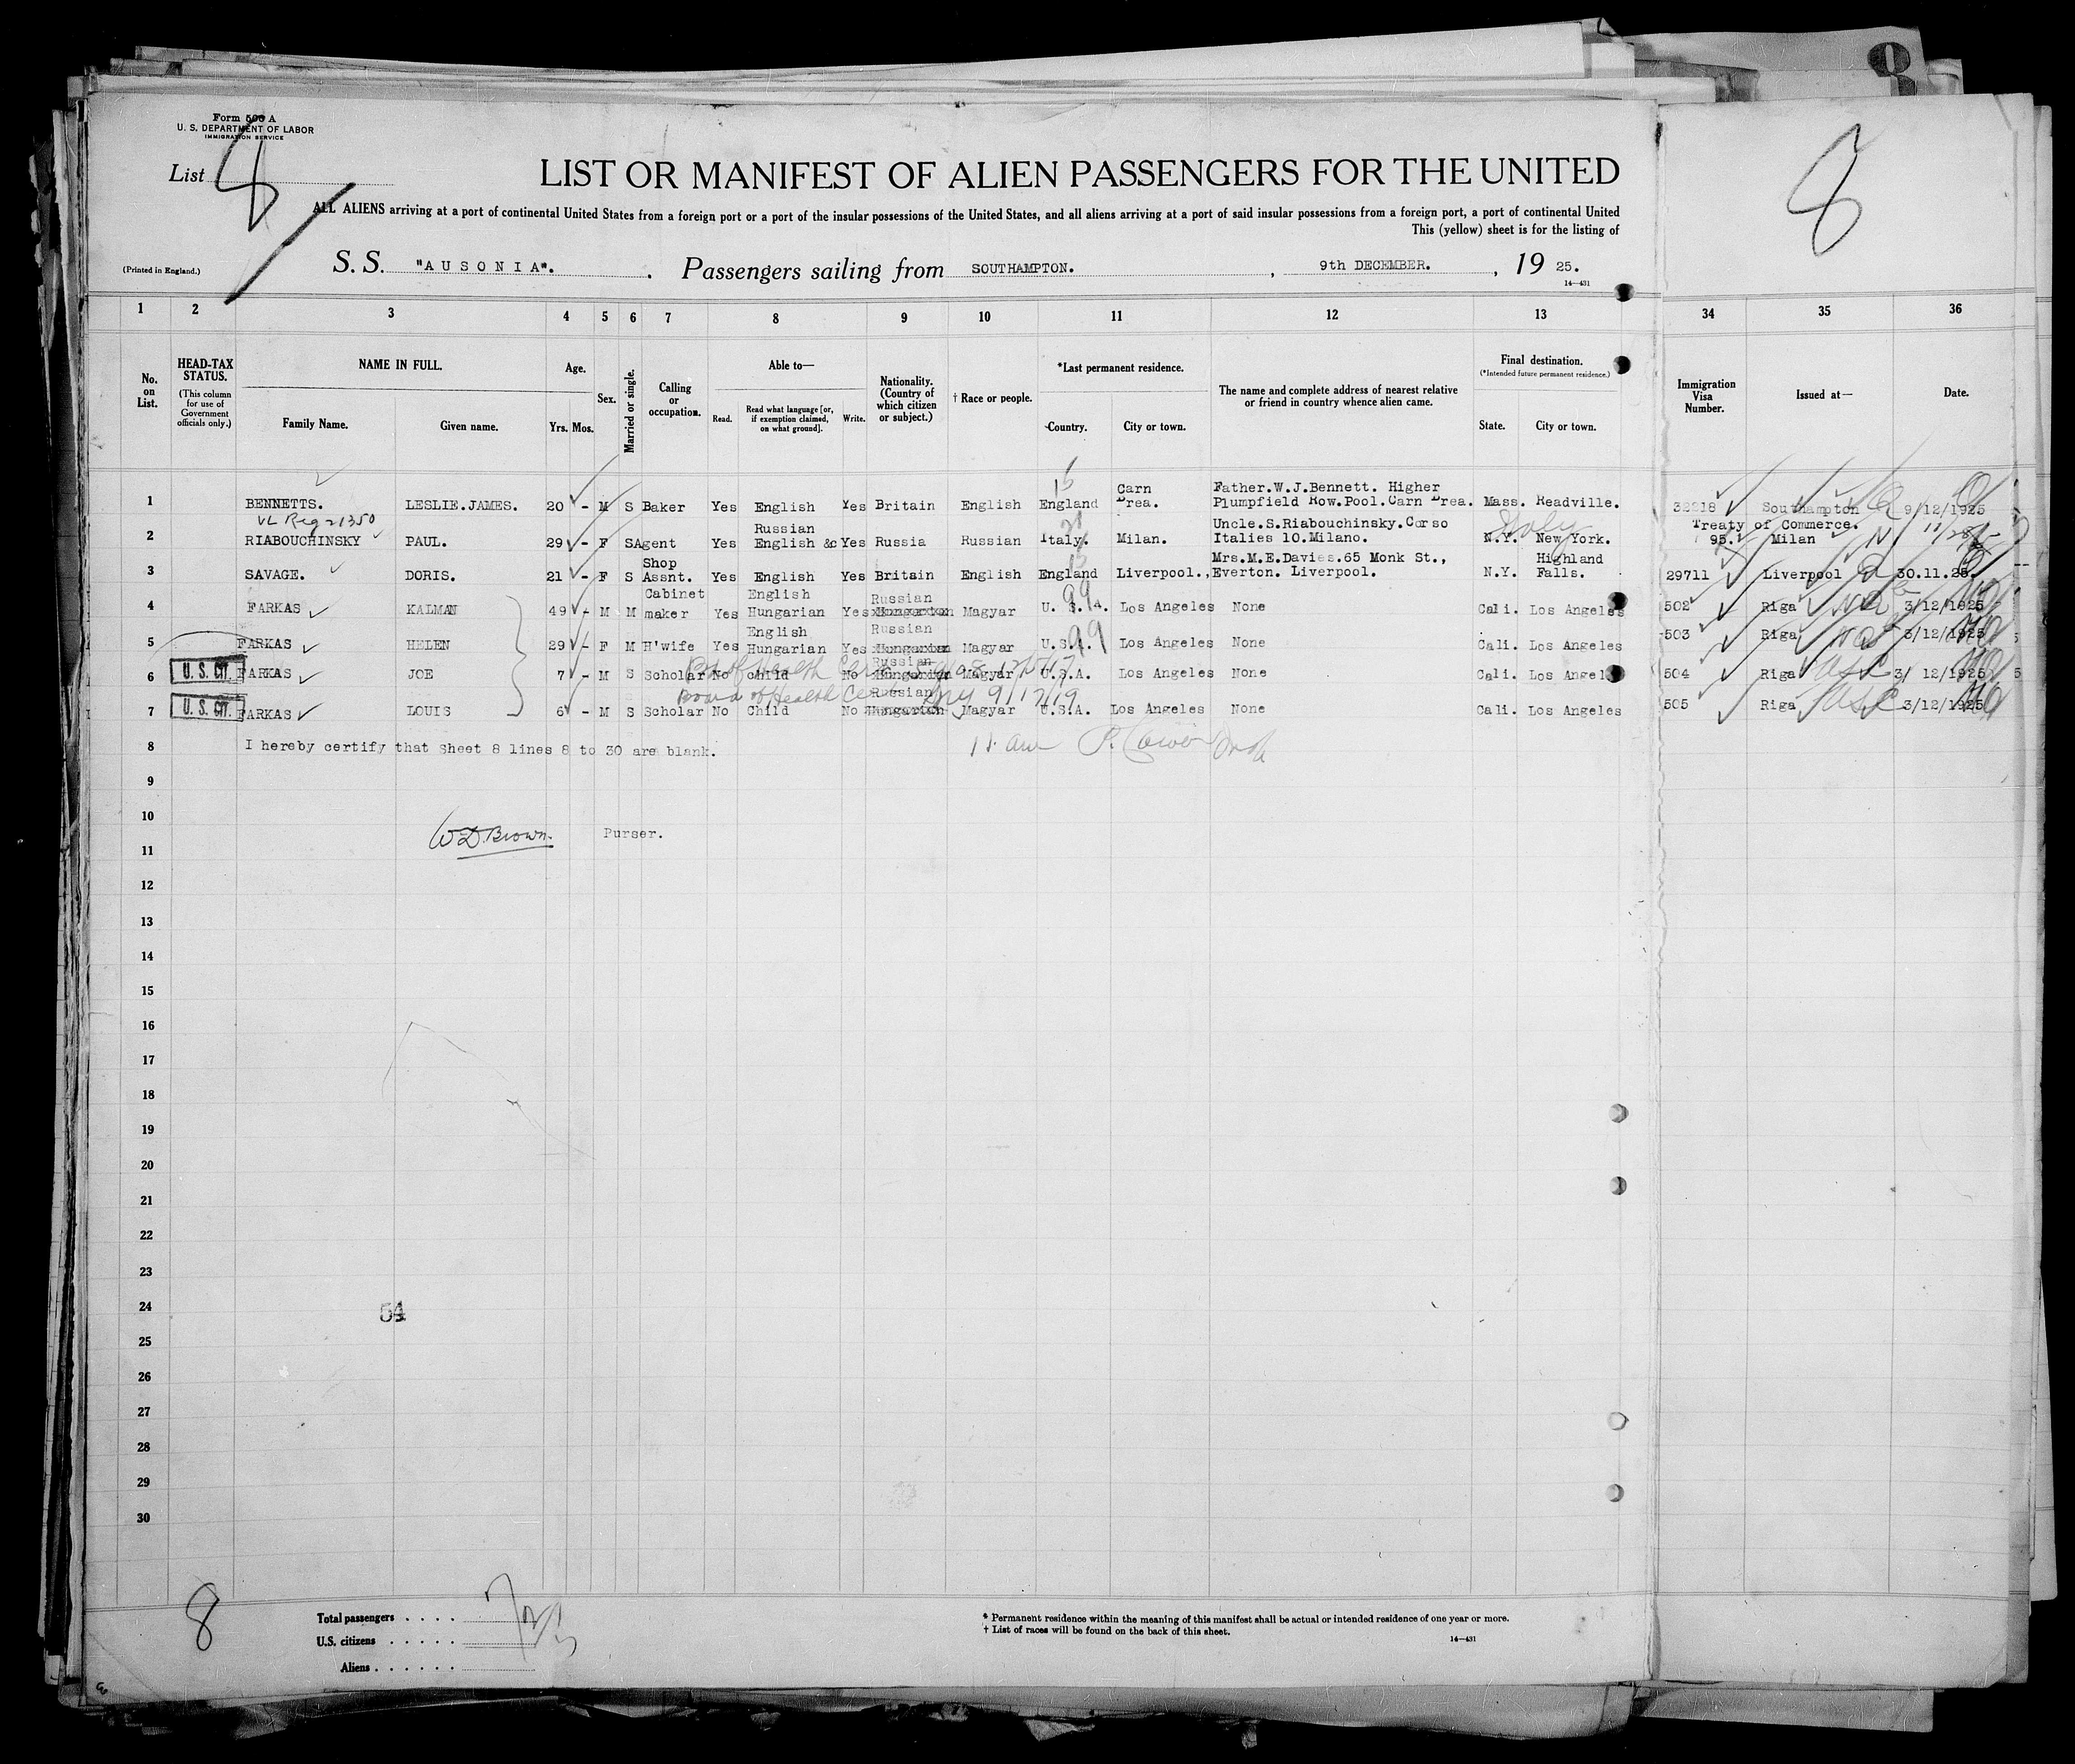 8
Form 500 A
U. S. DEPARTMENT OF LABOR
IMMIGRATION SERVICE
List 8
8
LIST OR MANIFEST OF ALIEN PASSENGERS FOR THE UNITED
ALL ALIENS arriving at a port of continental United States from a foreign port or a port of the insular possessions of the United States, and all aliens arriving at a port of said insular possessions from a foreign port, a port of continental United
This (yellow) sheet is for the listing of
(Printed in England.)
S. S. "AUSONIA". Passengers sailing from SOUTHAMPTON. , 9th DECEMBER. , 19 25.
14—431
1 2 3 4 5 6 7 8 9 10 11 12 13 34 35 36
No. on List.
HEAD-TAX STATUS.
(This column for use of Government officials only.)
NAME IN FULL.
Family Name. Given name.
Age.
Yrs. Mos.
Sex.
Married or single.
Calling or occupation.
Able to—
Read. Read what language [or, if exemption claimed, on what ground]. Write.
Nationality. (Country of which citizen or subject.)
† Race or people.
*Last permanent residence.
Country. City or town.
The name and complete address of nearest relative or friend in country whence alien came.
Final destination.
(*Intended future permanent residence.)
State. City or town.
Immigration Visa Number.
Issued at—
Date.
15 Carn Father.W.J.Bennett. Higher
1 BENNETTS. LESLIE.JAMES. 20 - M S Baker Yes English Yes Britain English England Brea. Plumpfield Row.Pool.Carn Brea. Mass. Readville. 32218 Southampton 9/12/1925
VL Reg 21350 Russian Uncle.S.Riabouchinsky.Corso Italy Treaty of Commerce.
2 RIABOUCHINSKY PAUL. 29 - F S Agent Yes English &c Yes Russia Russian Italy. Milan. Italies 10.Milano. N.Y. New York. 95. Milan 11/28/
Shop Mrs.M.E.Davies.65 Monk St., Highland
3 SAVAGE. DORIS. 21 - F S Assnt. Yes English Yes Britain English England Liverpool., Everton. Liverpool. N.Y. Falls. 29711 Liverpool 30.11.25.
Cabinet English Russian 99
4 FARKAS KALMAN 49 - M M maker Yes Hungarian Yes Hungarian Magyar U. S. A. Los Angeles None Cali. Los Angeles 502 Riga 3/12/1925
English Russian 99
5 FARKAS HELEN 29 - F M H'wife Yes Hungarian Yes Hungarian Magyar U.S. Los Angeles None Cali. Los Angeles 503 Riga 3/12/1925
Russian
6 U. S. CIT. FARKAS JOE 7 - M S Scholar No child No Hungarian Magyar U.S.A. Los Angeles None Cali. Los Angel 504 Riga USC 3/ 12/1925
Board of Health Cer NY 9/12/19
Russian
7 U. S. CIT. FARKAS LOUIS 6 - M S Scholar No Child No Hungarian Magyar U.S.A. Los Angeles None Cali. Los Angeles 505 Riga USC 3/12/1925
8 I hereby certify that sheet 8 lines 8 to 30 are blank.
9
10
W.D.Brown. Purser.
11
12
13
14
15
16
17
18
19
20
21
22
23
24
54
25
26
27
28
29
30
8
Total passengers . . . . 7
U.S. citizens . . . . .
Aliens . . . . . .
* Permanent residence within the meaning of this manifest shall be actual or intended residence of one year or more.
† List of races will be found on the back of this sheet.
14—431